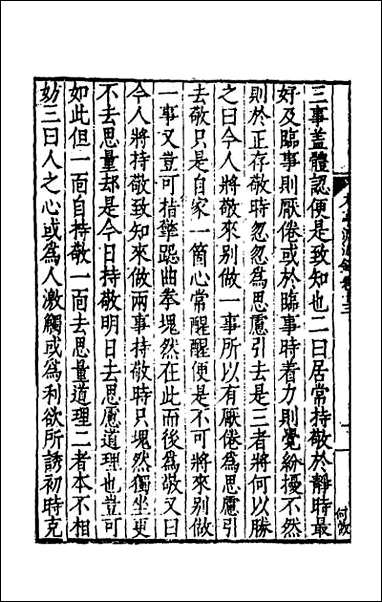 三事蓋體認便是致知也二曰居常持敬於靜時最
好及臨事則厭倦或於臨事時着力則覺紛擾不然
則於正存敬時忽忽為思慮引去是三者將何以勝
之曰今人將敬來別做一事所以有厭倦為思慮引
去敬只是自家一箇心常醒醒便是不可將來別做
一事又豈可指擎跽曲拳塊然在此而後為敬又曰
今人將持敬致知來做兩事持敬時只塊然獨坐更
不去思量却是今日持敬明日去思慮道理也豈可
如此但一面自持敬一面去思量道理二者本不相
妨三曰人之心或為人激觸或為利欲所誘初時克